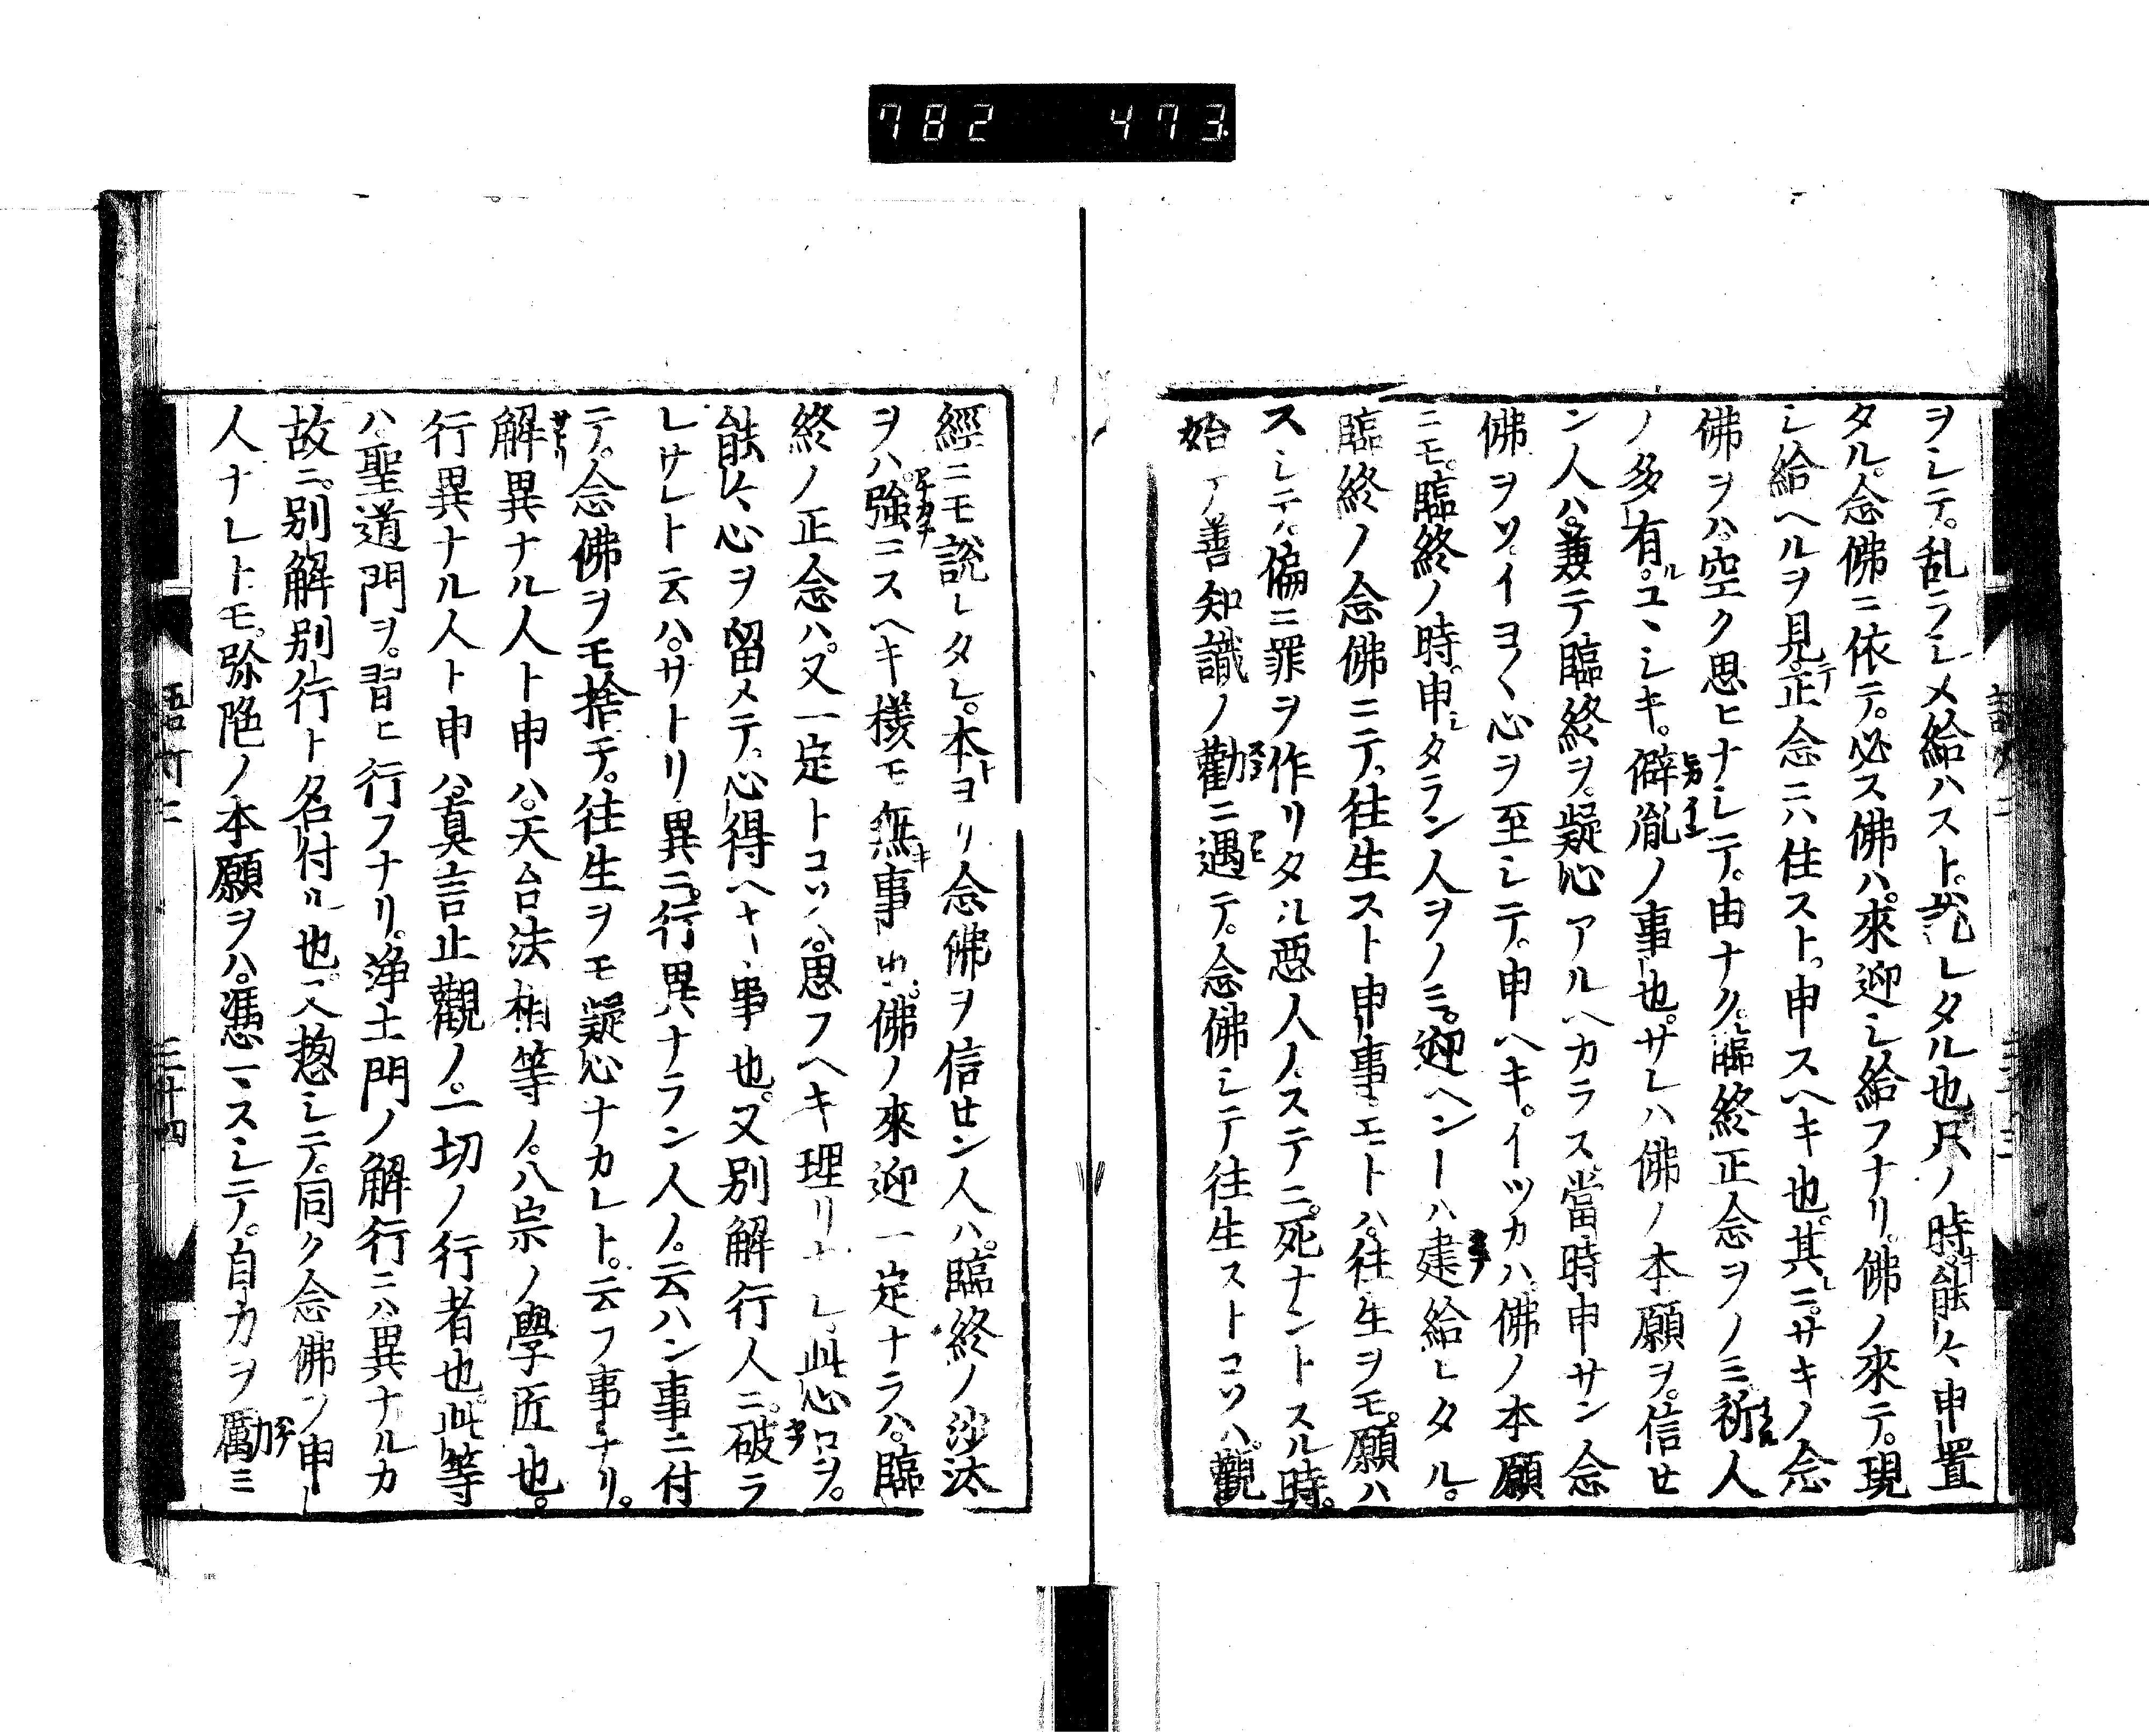 782 473
ヲシテ。乱ラシメ給ハスト。説レタル也。尺ノ時キ。能々申置
タル。念佛ニ依テ。必ス佛ハ。來迎シ給フナリ。佛ノ來テ。現
シ給ヘルヲ見テ。正念ニハ住スト。申スヘキ也。其レニ。サキノ念
佛ヲハ。空ク思ヒナシテ。由ナク。臨終正念ヲノミ。祈人
ノ多有ル。ユヽシキ。僻胤ノ事也。サレハ佛ノ本願ヲ。信セ
ン人ハ。兼テ臨終ヲ。疑心アルヘカラス當時申サン念
佛ヲソ。イヨ〱心ヲ至シテ。申ヘキ。イツカハ。佛ノ本願
ニモ。臨終ノ時。申シタラン人ヲノミ。迎ヘンーハ建給レタル。
臨終ノ念佛ニテ。往生スト申事。エトハ。往生ヲモ。願ハ
スシテ。偏ニ罪ヲ作リタル悪人ノ。ステニ。死ナントスル時。
始テ善知識ノ勸ニ遇ヒテ。念佛シテ往生ストコソハ。觀
經ニモ説レタレ。本トヨリ念佛ヲ信セン人ハ。臨終ノ沙汰
ヲハ。強ニスヘキ様モ無キ事也。佛ノ來迎一定ナラハ。臨
終ノ正念ハ。又一定トコソハ。思フヘキ理リナレ。此心ロヲ。
能々心ヲ留メテ。心得ヘキー事也。又別解行人ニ。破ラ
レサレト云ハ。サトリ異ニ。行異ハナラン人ノ。云ハン事ニ付
テ。念佛ヲモ捨テ。往生ヲモ疑心ナカレト。云フ事ナリ。
解異ナル人ト申ハ。天台法相等ノ。八宗ノ學匠也。
行異ナル人ト申ハ。真言止觀ノ。一切ノ行者也。此等
ハ。聖道門ヲ。習ヒ行フナリ。浄土門ノ解行ニハ。異ナルカ
故ニ。別解別行ト名付ル也。又惣シテ。同ク念佛ヲ申
人ナレトモ。弥陀ノ本願ヲハ。憑マスシテ。自力ヲ勵ミ
語灯三 三十四